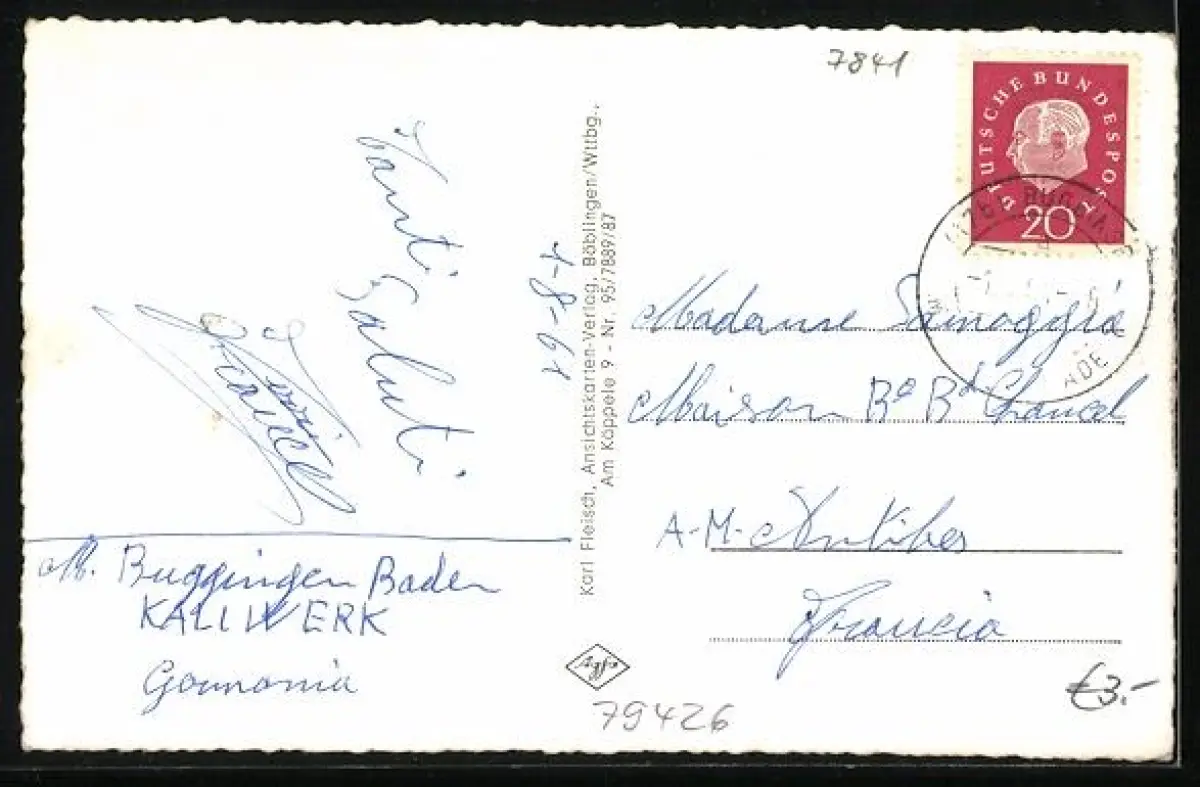 7841
DEUTSCHE BUNDESPOST
20
BUGGINGEN
Vanti Saluti
1-8-61
Franco
Karl Fleisch, Ansichtskarten-Verlag, Böblingen/Wttbg.,
Am Käppele 9 - Nr. 95/7889/87
Madame Sainaggia
Maison Be Bd Chancel
A-M- Antibes
Francia
M. Buggingen Baden
KALIWERK
Germania
Agfa
79426
€3.-